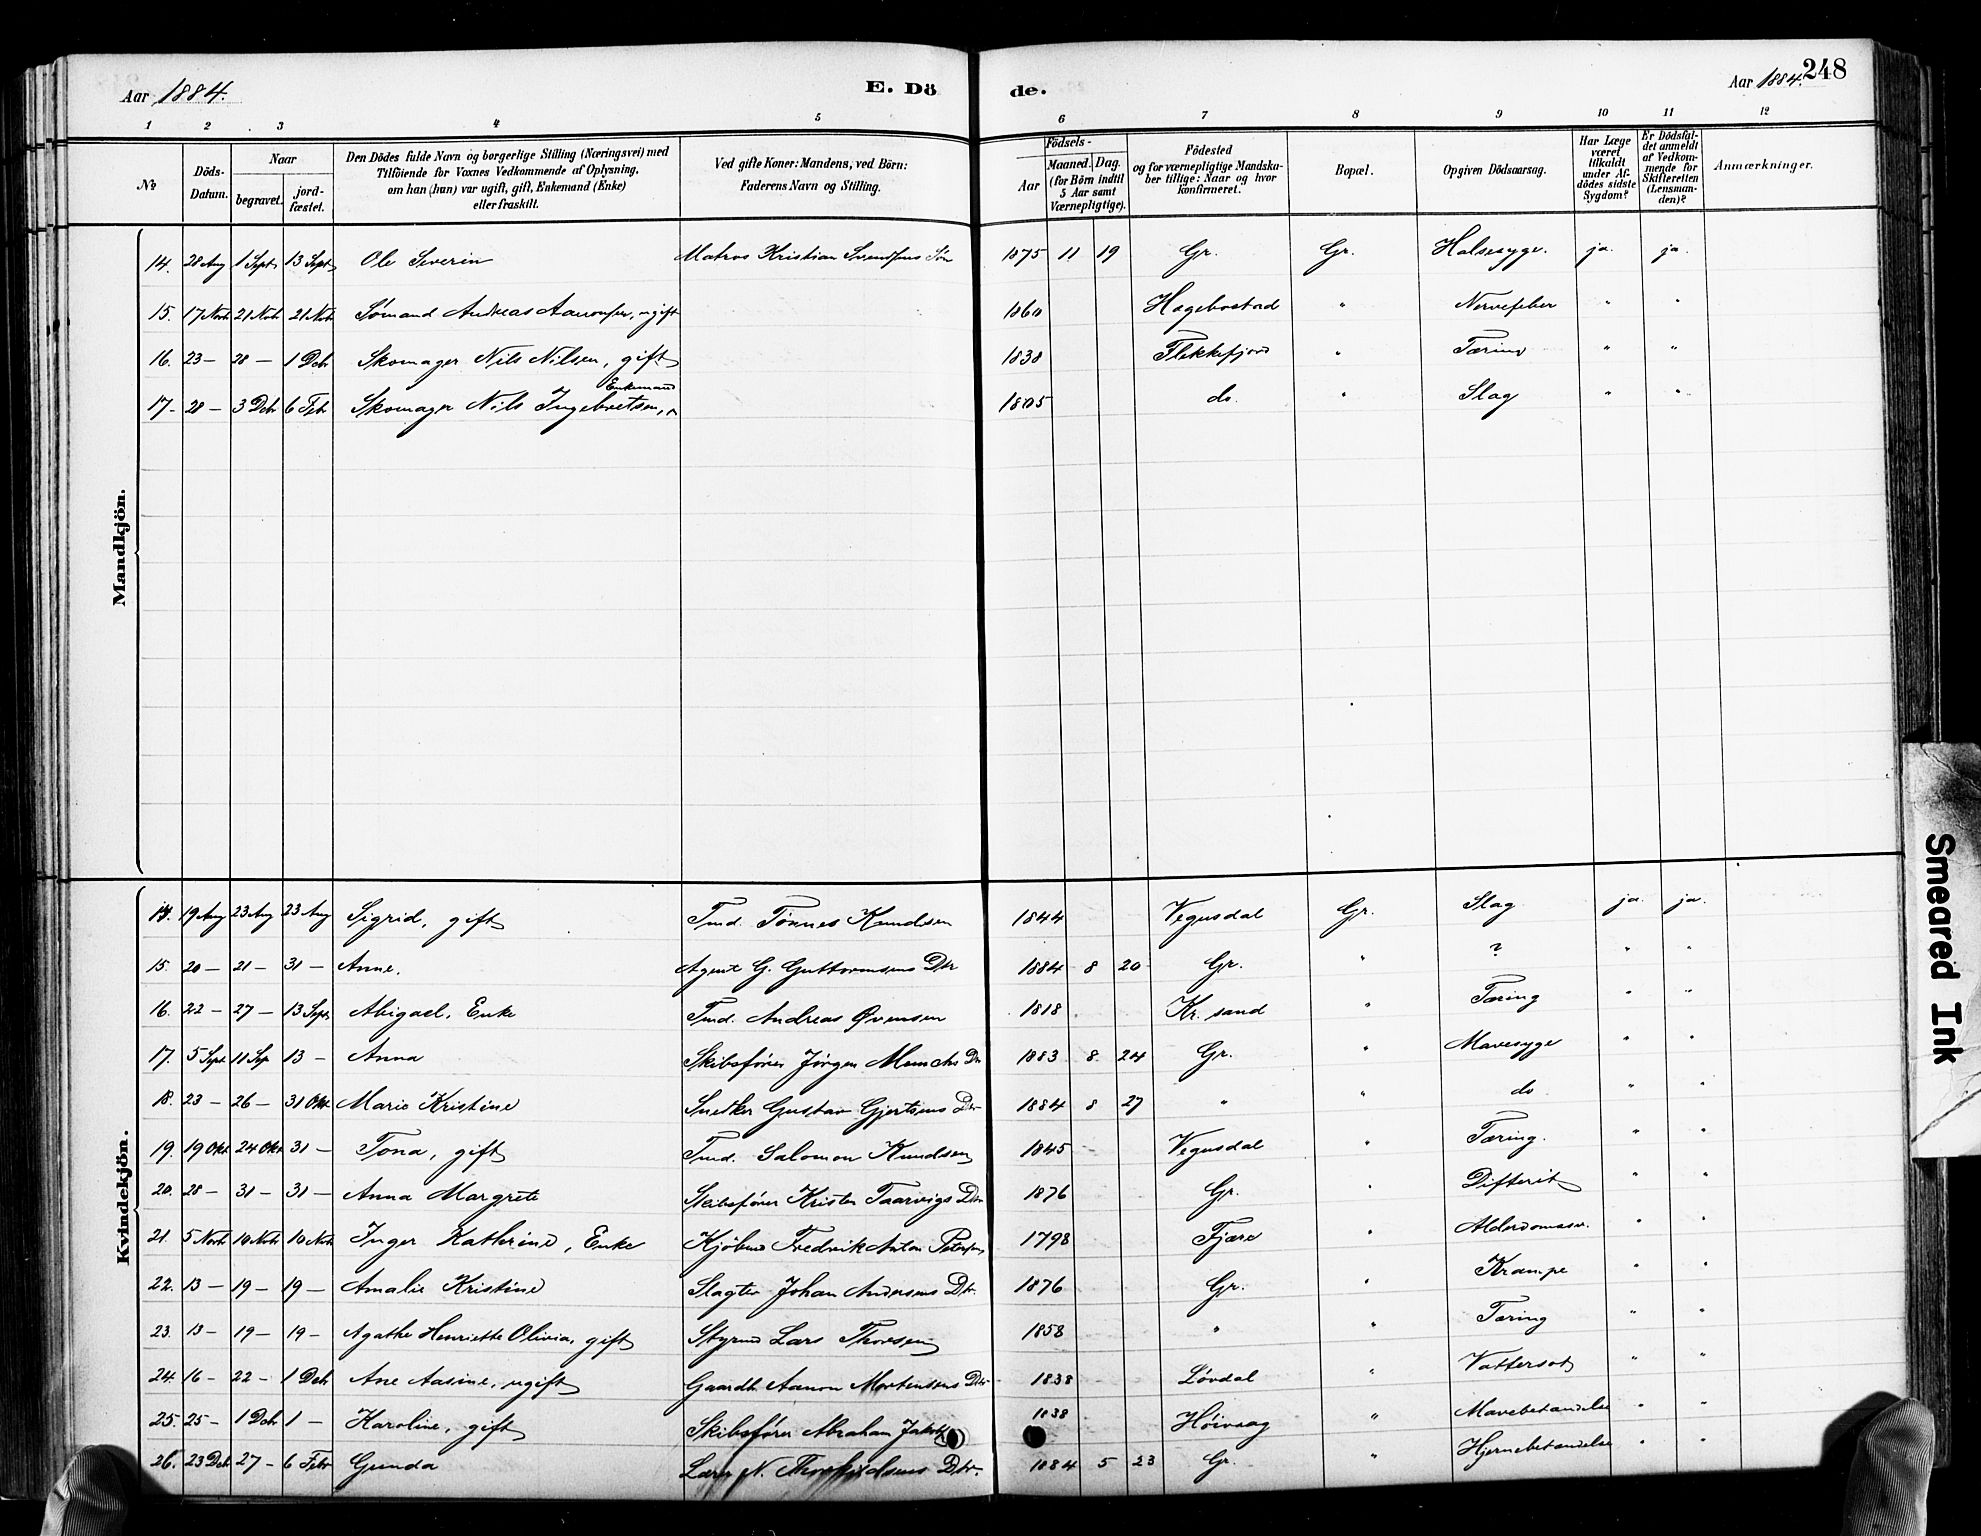 Aar 1884 E. Dö de. Aar 1884. 248
1 2 3 4 5 6 7 8 9 10 11 12
No
Döds-Datum.
Naar
begravet. jord-fæstet.
Den Dödes fulde Navn og borgerlige Stilling (Næringsvei) med
Tilföiende for Voxnes Vedkommende af Oplysning,
om han (hun) var ugift, gift, Enkemand (Enke)
eller fraskilt.
Ved gifte Koner: Mandens, ved Börn:
Faderens Navn og Stilling.
Födsels-
Aar Maaned. Dag.
(for Börn indtil
5 Aar samt
Værnepligtige).
Födested
og for værnepligtige Mandska-
ber tillige: Naar og hvor
konfirmeret.
Bopæl.
Opgiven Dödsaarsag.
Har Læge
været
tilkaldt
under Af-
dödes sidste
Sygdom?
Er Dödsfal-
det anmeldt
af Vedkom-
mende for
Skifteretten
(Lensman-
den)?
Anmærkninger.
Mandkjön.
14. 28 Aug 1 Sept 13 Sept Ole Severin Matros Kristian Svendsens Søn 1875 11 19 Gr. Gr. Halsesyge. ja. ja.
15. 17 Novb 21 Novb 21 Novb Sømand Andreas Aanonsen, ugift 1860 Hægebostad " Nervefeber " "
16. 23 — 28 — 1 Deb Skomager Nils Nilsen, gift 1838 Flekkefjord " Tæring " "
17. 28 — 3 Deb 6 Feb Skomager Nils Ingebretsen, Enkemand 1805 do. " Slag " "
Kvindekjön.
14. 19 Aug 23 Aug 23 Aug Sigrid, gift Tmd. Tønnes Knudsen 1844 Vegusdal Gr. Slag ja. ja.
15. 20 — 21 — 31 — Anne. Agent G. Guttormsens Dtr 1884 8 20 Gr. " ? " "
16. 22 — 27 — 13 Sept Abigael, Enke Tmd. Andreas Øvensen 1818 Kr. sand " Tæring " "
17. 5 Sept 11 Sep 13 — Anna Skibsfører Jørgen Munchs Dtr 1883 8. 24 Gr. " Mavesyge " "
18. 23 — 26 — 31 Okt. Marie Kristine Snedker Gustav Gjertsens Dtr 1884 8 27 " " do " "
19. 19 Okt 24 Okt 31 — Tona, gift Tmd. Salomon Knudsen 1845 Vegusdal " Tæring. " "
20. 28 — 31 — 31 — Anna Margrete Skibsfører Kristen Taarvigs Dtr 1876 Gr. " Difterit " "
21. 5 Novb 10 Novb 10 Novb Inger Kathrine, Enke Kjøbmd Fredrik Anton Petersens 1798 Fjære " Alderdomssv. " "
22. 13 — 19 — 19 — Amalie Kristine Slagter Johan Andersens Dtr. 1876 Gr. " Krampe " "
23. 13 — 19 — 19 — Agathe Henriette Olivia, gift Styrmd Lars Thorsen 1858 " " Tæring " "
24. 16 — 22 — 1 Deb Ane Aasine, ugift Gaardb. Aanon Mortensens Dtr 1838 Løvdal " Vattersot " "
25. 25 — 1 Deb 1 — Karoline, gift Skibsfører Abraham 1838 Høivaag " Mavebetændelse " "
26. 23 Deb 27 — 6 Febr Gunda Lars N. Dtr. 1884 5 23 Gr. " Hjernebetændelse " "
Smeared Ink